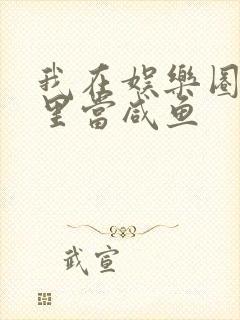 我在娱樂圈
里當咸鱼
武宣